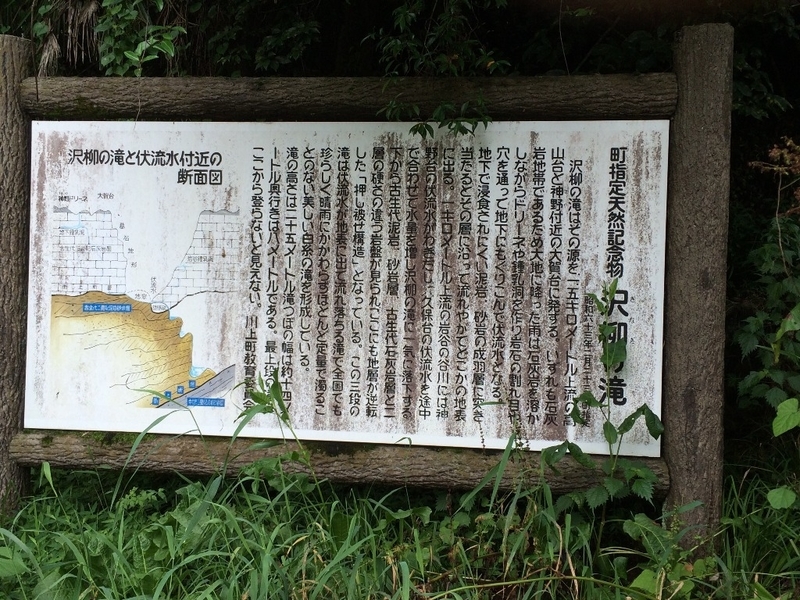 町指定天然記念物 沢柳の滝
沢柳の滝はその源を一五キロメートル上流の高
山台と神野付近の大賀台に発する。いずれも石灰
岩地帯であるため大地に降った雨は石灰岩を溶か
しながらドリーネや鍾乳洞を作り岩石の割れ目や
穴を通って地下にもぐりこんで伏流水となる。
地下で浸食されにくい泥岩、砂岩の成羽層に突き
当たるとその層に沿って流れやがてどこかの地表
に出る。一キロメートル上流の岩谷の谷川には神
野台の伏流水がわき出し、久保台の伏流水を途中
で合わせて水量を増し沢柳の滝に一気に落下する
下から古生代泥岩、砂岩層、古生代石灰岩層と二
層の硬さの違う岩盤が見られここにも地層が逆転
した「押し被せ構造」となっている。この三段の
滝は伏流水が地表に出て流れ落ちる滝で全国でも
珍らしく晴雨にかかわらずほとんど定量で濁るこ
とのない美しい白糸の滝を形成している。
滝の高さは二十五メートル滝つぼの幅は約十四
ートル奥行きは八メートルである。最上段の
ここから登らないと見えない。川上町教育委員会
沢柳の滝と伏流水付近の
断面図
神野ドリーネ
大賀台